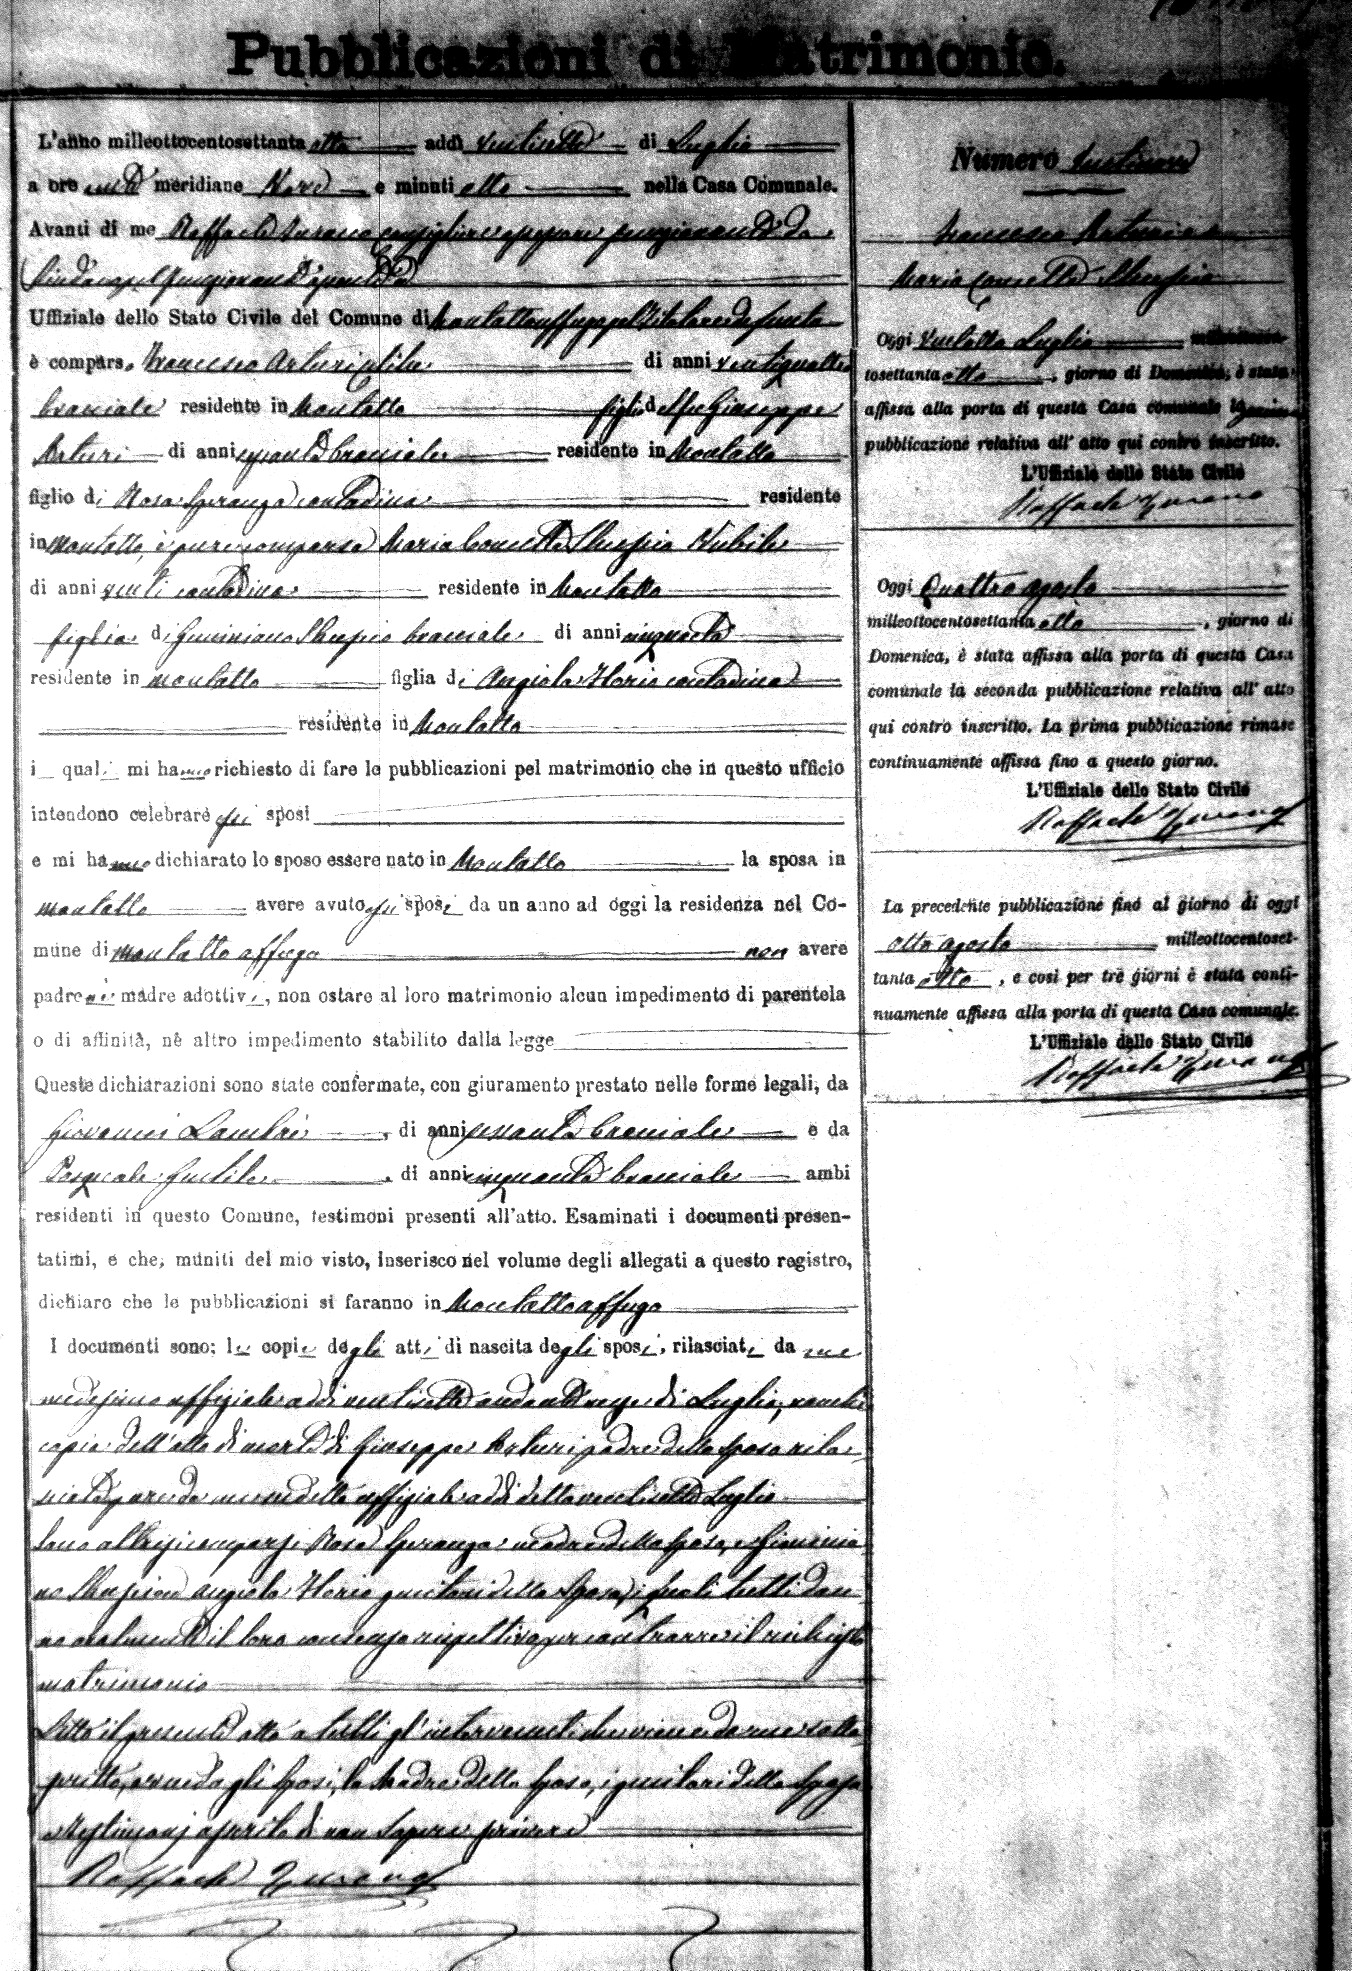 Pubblicazioni di Matrimonio.
L'anno milleottocentosettanta otto addì ventisette di Luglio
a ore meridiane e minuti otto nella Casa Comunale.
Avanti di me Raffaele Turano Consigliere funzionante da
Sindaco
Uffiziale dello Stato Civile del Comune di Montaltouffugo pel Titolare defunto
è comparso Francesco Arturi celibe di anni ventiquattro
bracciale residente in Montalto figlio del fu Giuseppe
Arturi di anni sessanta bracciale residente in Montalto
figlio di Rosa Speranza contadina residente
in Montalto, è pure comparsa Maria Concetta Nubile
di anni venti contadina residente in Montalto
figlia di Geminiano bracciale di anni cinquanta
residente in Montalto figlia di Angiola Florio contadina
residente in Montalto
i quali mi hanno richiesto di fare le pubblicazioni pel matrimonio che in questo ufficio
intendono celebrare gli sposi
e mi hanno dichiarato lo sposo essere nato in Montalto la sposa in
Montalto avere avuto gli sposi da un anno ad oggi la residenza nel Co-
mune di Montalto uffugo non avere
padre nè madre adottivi, non ostare al loro matrimonio alcun impedimento di parentela
o di affinità, nè altro impedimento stabilito dalla legge
Queste dichiarazioni sono state confermate, con giuramento prestato nelle forme legali, da
Giovanni di anni sessanta bracciale e da
Pasquale Gentile, di anni cinquanta bracciale ambi
residenti in questo Comune, testimoni presenti all'atto. Esaminati i documenti presen-
tatimi, e che, muniti del mio visto, inserisco nel volume degli allegati a questo registro,
dichiaro che le pubblicazioni si faranno in Montalto uffugo
I documenti sono: le copie degli atti di nascita degli sposi, rilasciati da me
medesimo uffiziale addì ventisette andante mese di Luglio, nonchè
copia dell'atto di morte di Giuseppe Arturi padre dello sposo rila-
sciata pure da me suddetto uffiziale addì detto ventisette Luglio
Sono altresì comparsi Rosa Speranza madre dello sposo, e Geminia-
no ed Angiola Florio genitori della sposa, i quali tutti dan-
no oralmente il loro consenso rispettivo per contrarre il richiesto
matrimonio
Letto il presente atto a tutti gl'intervenuti che viene da me sotto-
scritto, avendo gli sposi, la Madre dello sposo, i genitori della sposa
e testimoni asserito di non sapere scrivere
Raffaele Turano
Numero ventinove
Francesco Arturi e
Maria Concetta
Oggi ventotto Luglio milleottocen-
tosettanta otto, giorno di Domenica, è stata
affissa alla porta di questa Casa comunale la prima
pubblicazione relativa all'atto qui contro inscritto.
L'Uffiziale dello Stato Civile
Raffaele Turano
Oggi Quattro agosto
milleottocentosettanta otto, giorno di
Domenica, è stata affissa alla porta di questa Casa
comunale la seconda pubblicazione relativa all'atto
qui contro inscritto. La prima pubblicazione rimase
continuamente affissa fino a questo giorno.
L'Uffiziale dello Stato Civile
Raffaele Turano
La precedente pubblicazione fino al giorno di oggi
otto agosto milleottocentoset-
tanta otto, e così per tre giorni è stata conti-
nuamente affissa alla porta di questa Casa comunale.
L'Uffiziale dello Stato Civile
Raffaele Turano